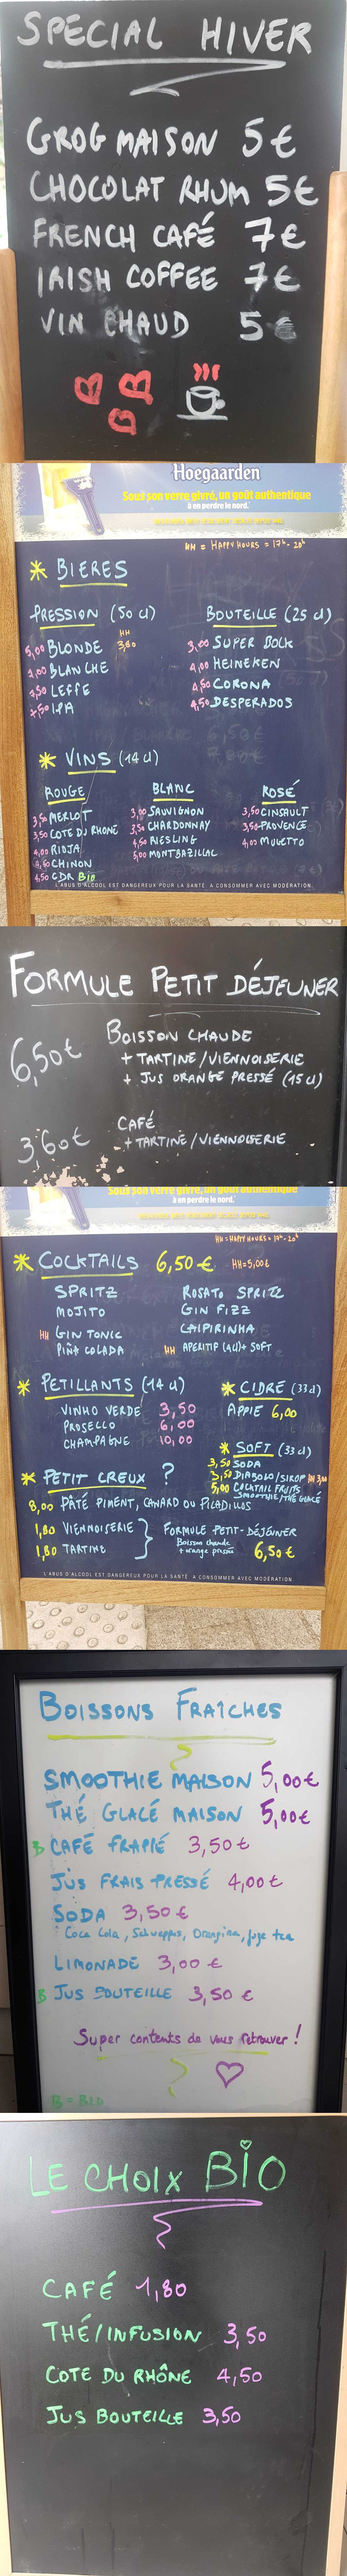 SPECIAL HIVER
GROG MAISON 5€
CHOCOLAT RHUM 5€
FRENCH CAFÉ 7€
IRISH COFFEE 7€
VIN CHAUD 5€
Hoegaarden
Sous son verre givré, un goût authentique
à en perdre le nord.
HH = HAPPY HOURS = 17h - 20h
* BIERES
PRESSION (50 cl)
HH
5,00 BLONDE 3,80
7,00 BLANCHE
7,50 LEFFE
7,50 IPA
BOUTEILLE (25 cl)
3,00 SUPER BOCK
4,00 HEINEKEN
4,50 CORONA
4,50 DESPERADOS
* VINS (14 cl)
ROUGE
3,50 MERLOT
3,50 COTE DU RHONE
4,00 RIOJA
CHINON
4,50 CDR Bio
BLANC
3,00 SAUVIGNON
3,50 CHARDONNAY
4,50 RIESLING
5,00 MONTBAZILLAC
ROSÉ
3,50 CINSAULT
3,50 PROVENCE
4,00 MUGETTO
L'ABUS D'ALCOOL EST DANGEREUX POUR LA SANTÉ. A CONSOMMER AVEC MODÉRATION.
FORMULE PETIT DÉJEUNER
6,50€ BOISSON CHAUDE
+ TARTINE/VIENNOISERIE
+ JUS ORANGE PRESSÉ (15 cl)
3,60€ CAFÉ
+ TARTINE/VIENNOISERIE
Sous son verre givré, un goût authentique
à en perdre le nord.
HH = HAPPY HOURS = 17h - 20h
* COCKTAILS 6,50€ HH=5,00€
SPRITZ
MOJITO
HH GIN TONIC
PIÑA COLADA
ROSATO SPRITZ
GIN FIZZ
CAIPIRINHA
HH APERITIF (4cl)+ SOFT
* PETILLANTS (14 cl)
VINHO VERDE 3,50
PROSECCO 6,00
CHAMPAGNE 10,00
* CIDRE (33cl)
APPIE 6,00
* SOFT (33cl)
3,50 SODA
3,50 DIABOLO/SIROP HH 3,00
5,00 COCKTAIL FRUITS
SMOOTHIE/THÉ GLACÉ
* PETIT CREUX ?
8,00 PÂTÉ PIMENT, CANARD OU PICADILLOS
1,80 VIENNOISERIE
1,80 TARTINE
FORMULE PETIT-DÉJEUNER
Boisson chaude
+ orange pressée 6,50€
L'ABUS D'ALCOOL EST DANGEREUX POUR LA SANTÉ. A CONSOMMER AVEC MODÉRATION.
BOISSONS FRAÎCHES
SMOOTHIE MAISON 5,00€
THÉ GLACÉ MAISON 5,00€
B CAFÉ FRAPPÉ 3,50€
JUS FRAIS PRESSÉ 4,00€
SODA 3,50€
Coca Cola, Schweppes, Orangina, fuze tea
LIMONADE 3,00€
B JUS BOUTEILLE 3,50€
Super contents de vous retrouver !
B = BIO
LE CHOIX BIO
CAFÉ 1,80
THÉ/INFUSION 3,50
COTE DU RHÔNE 4,50
JUS BOUTEILLE 3,50